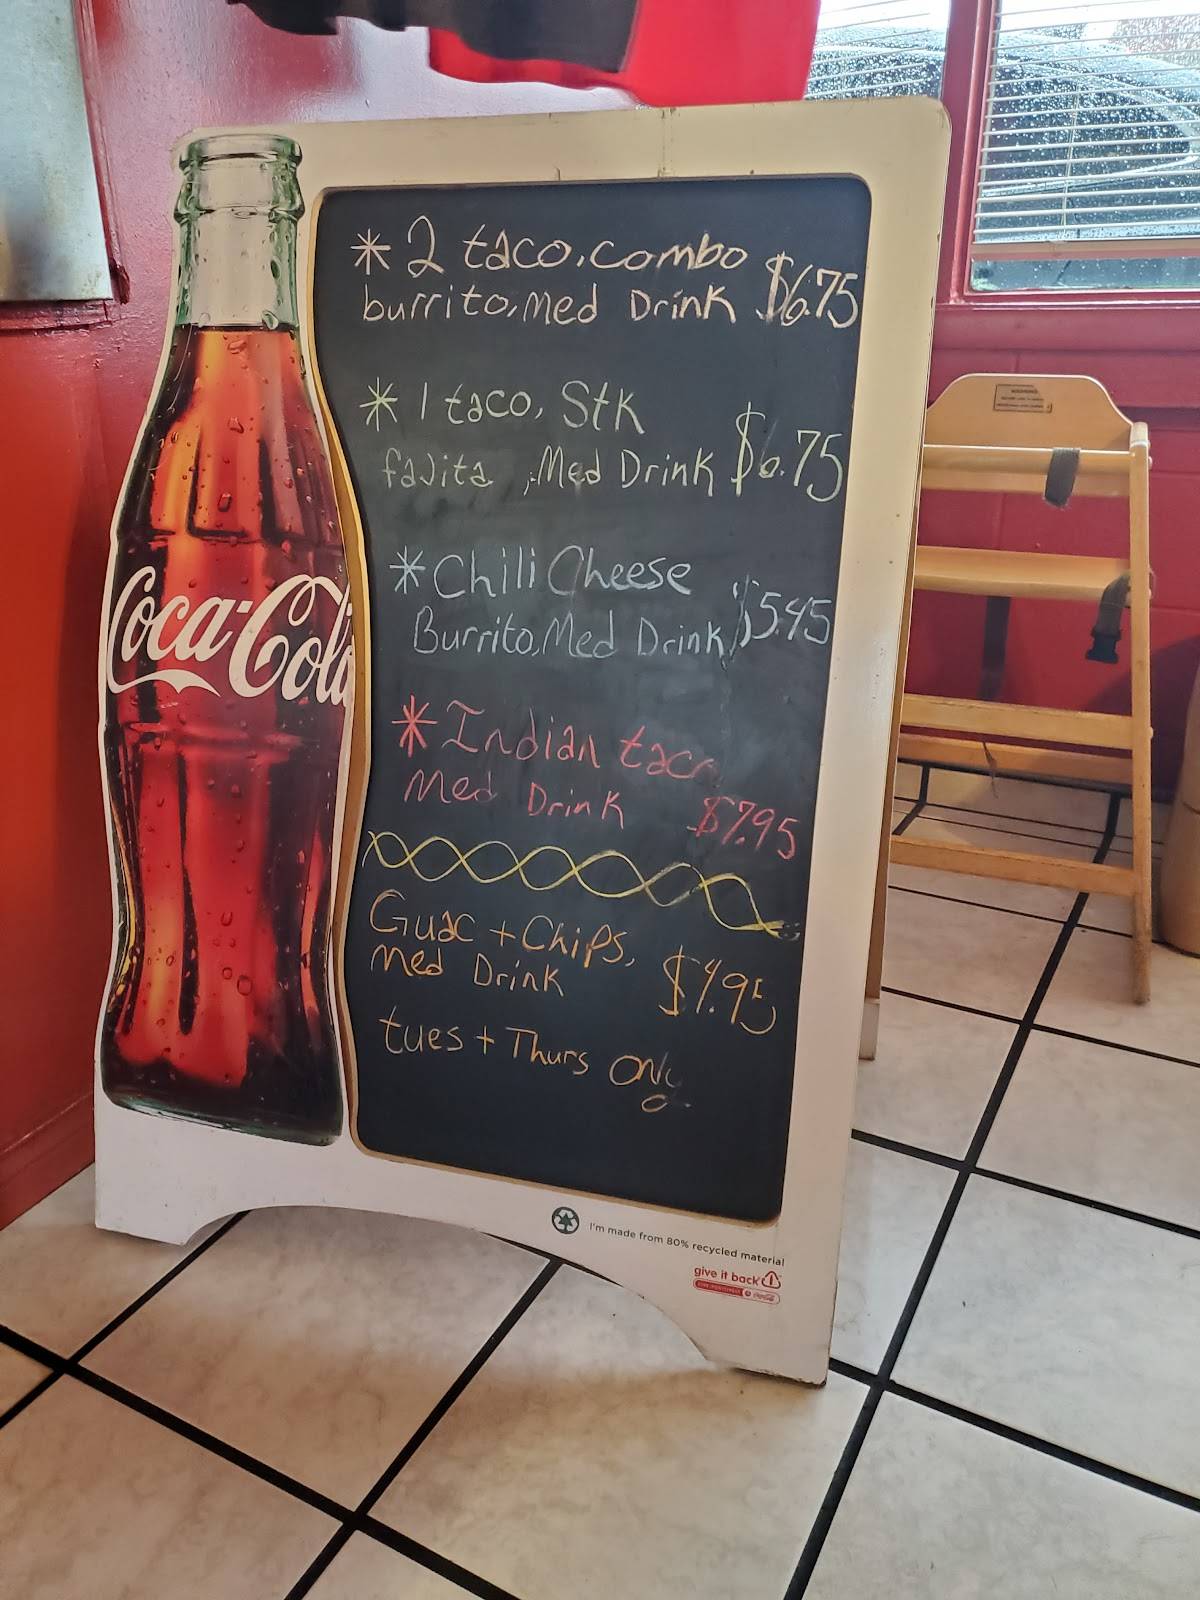 * 2 taco, combo
burrito, Med Drink $6.75
* 1 taco, Stk
faJita, Med Drink $6.75
* Chili Cheese
Burrito, Med Drink $5.45
* Indian taco
Med Drink $7.95
Guac + Chips,
Med Drink $4.95
tues + Thurs Only
Coca-Cola
I'm made from 80% recycled material
give it back
WARNING